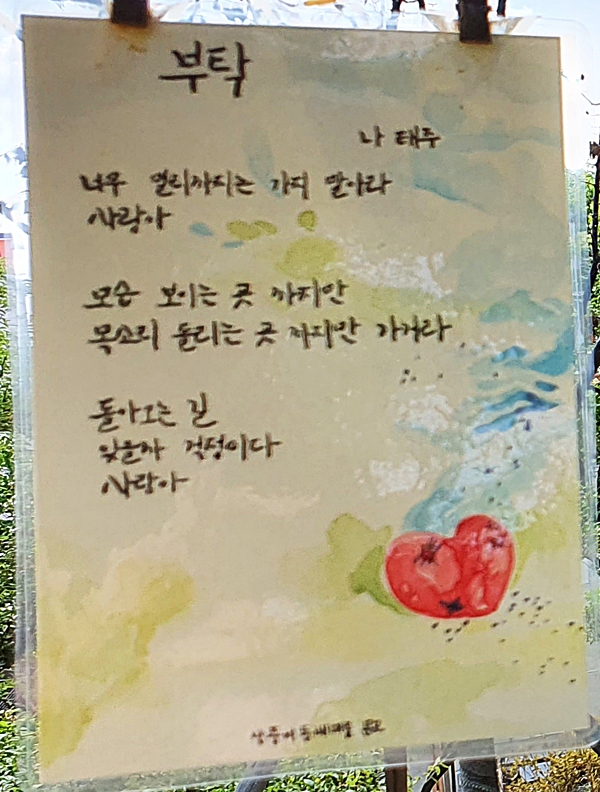 부탁
나 태주
너무 멀리까지는 가지 말아라
사랑아
모습 보이는 곳 까지만
목소리 들리는 곳 까지만 가거라
돌아오는 길
잊을까 걱정이다
사랑아